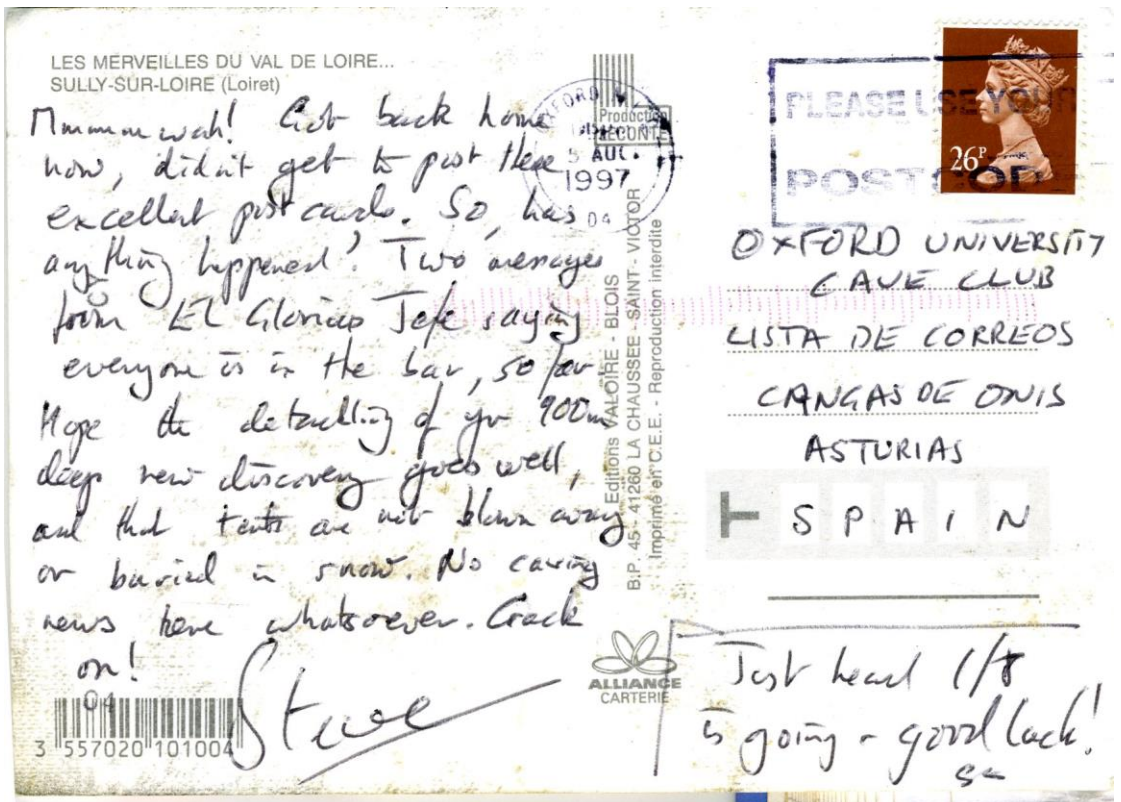 LES MERVEILLES DU VAL DE LOIRE...
SULLY-SUR-LOIRE (Loiret)
Mmmmmwah! Got back home
now, didn't get to post these
excellent postcards. So, has
anything happened? Two messages
from El Glorioso Jefe saying
everyone is in the bar, so far.
Hope the detackling of yr 900m
deep new discovery goes well,
and that tents are not blown away
or buried in snow. No caving
news here whatsoever. Crack
on!
04
Steve
3 557020 101004
OXFORD
5 AUG.
1997
04
Production
LECONTE
Editions VALOIRE - BLOIS
B.P. 45 - 41260 LA CHAUSSEE - SAINT - VICTOR
Imprimé en C.E.E. - Reproduction interdite
ALLIANCE
CARTERIE
PLEASE USE YOUR
POSTCODE
26P
OXFORD UNIVERSITY
CAVE CLUB
LISTA DE CORREOS
CANGAS DE ONIS
ASTURIAS
SPAIN
Just heard 1/8
is going - good luck!